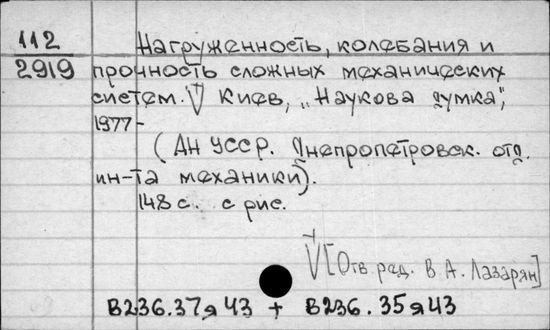 112
2919
Нагруженность, колебания и
прочность сложных механических
систем. V Киев, „Наукова думка",
1977 -
(АН УССР. Днепропетровск. отд.
ин-та механики).
148 с. с рис.
V [Отв. ред. В. А. Лазарян]
В236.37я43 + В236.35я43